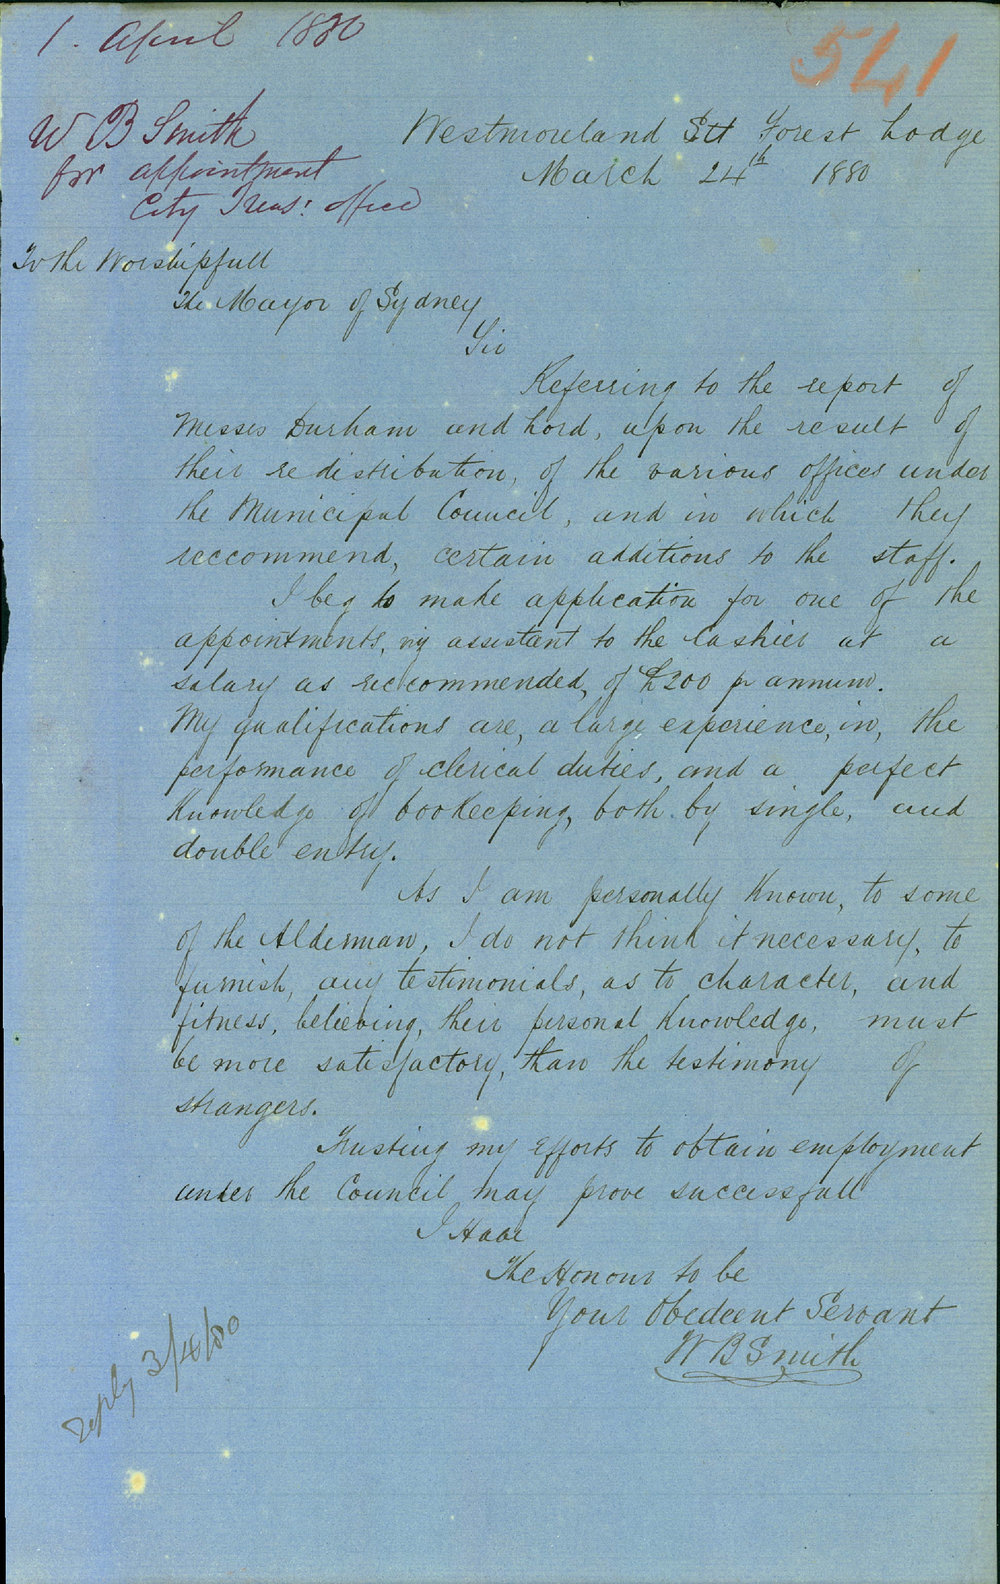 1. April 1880
541
W B Smith
for appointment
City Treas: office
Westmoreland Stt Forest Lodge
March 24th 1880
To the Worshipfull
The Mayor of Sydney
Sir
Referring to the report of
Messes Durham and Lord, upon the result of
their redistribution, of the various offices under
the Municipal Council, and in which they
reccommend, certain additions to the staff.
I beg to made application for one of the
appointments, viz assistant to the Cashier at a
salary as reccommended, of £200 pr annum.
My qualifications are, a large experience, in, the
performance of clerical duties, and a perfect
Knowledge of bookeeping, both by single, and
double entry.
As I am personally Known, to some
of the Alderman, I do not think it necessary, to
furnish, any testimonials, as to character, and
fitness, believing, their personal Knowledge, must
be more satisfactory, than the testimony of
strangers.
Trusting my efforts to obtain employment
under the Council may prove successfull
I Have
The Honour to be
Your Obedeent Servant
W B Smith
reply 3/4/80